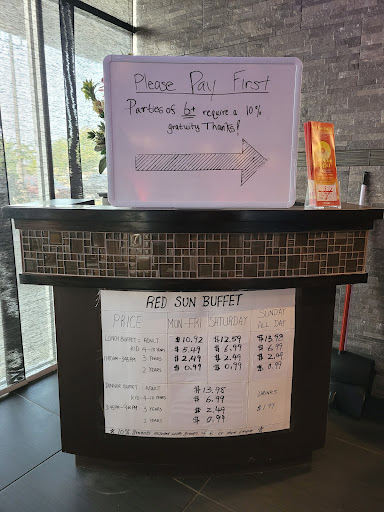 Please Pay First
Parties of 6+ require a 10%
gratuity Thanks!
RED SUN BUFFET
PRICE MON-FRI SATURDAY SUNDAY ALL DAY
LUNCH BUFFET: ADULT $10.92 $12.59 $13.98
KID 4-10 YEARS $5.49 $6.99 $6.99
3 YEARS $2.49 $2.49 $2.49
2 YEARS $0.99 $0.99 $0.99
DINNER BUFFET: ADULT $13.98 DRINKS
KID 4-10 YEARS $6.99 $1.99
3 YEARS $2.49
2 YEARS $0.99